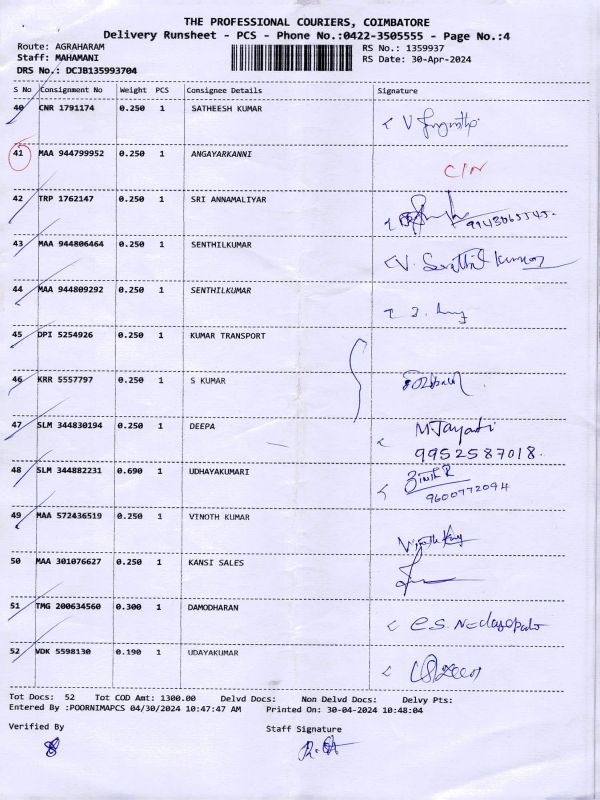 THE PROFESSIONAL COURIERS, COIMBATORE
Delivery Runsheet - PCS - Phone No.:0422-3505555 - Page No.:4
Route: AGRAHARAM RS No.: 1359937
Staff: MAHAMANI RS Date: 30-Apr-2024
DRS No.: DCJB135993704
S No Consignment No Weight PCS Consignee Details Signature
40 CNR 1791174 0.250 1 SATHEESH KUMAR
41 MAA 944799952 0.250 1 ANGAYARKANNI C/N
42 TRP 1762147 0.250 1 SRI ANNAMALIYAR
43 MAA 944806464 0.250 1 SENTHILKUMAR V. Senthil Kumar
44 MAA 944809292 0.250 1 SENTHILKUMAR
45 DPI 5254926 0.250 1 KUMAR TRANSPORT
46 KRR 5557797 0.250 1 S KUMAR
47 SLM 344830194 0.250 1 DEEPA M.Jayanti
9952587018.
48 SLM 344882231 0.690 1 UDHAYAKUMARI
9600772094
49 MAA 572436519 0.250 1 VINOTH KUMAR Vinoth Kumar
50 MAA 301076627 0.250 1 KANSI SALES
51 TMG 200634560 0.300 1 DAMODHARAN
52 VDK 5598130 0.190 1 UDAYAKUMAR
Tot Docs: 52 Tot COD Amt: 1300.00 Delvd Docs: Non Delvd Docs: Delvy Pts:
Entered By :POORNIMAPCS 04/30/2024 10:47:47 AM Printed On: 30-04-2024 10:48:04
Verified By Staff Signature